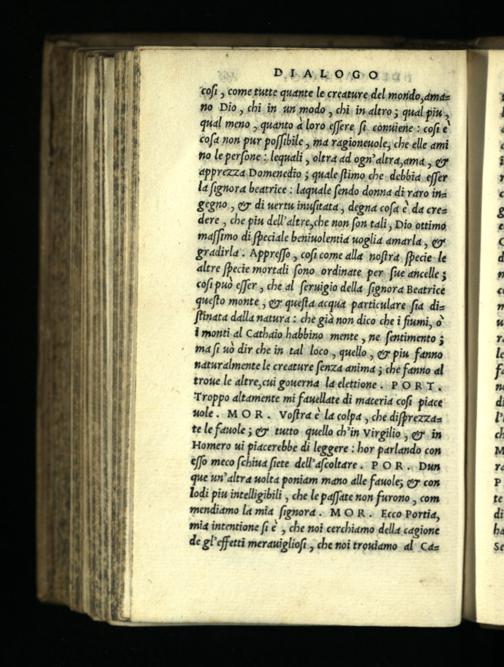 DIALOGO
cosi, come tutte quante le creature del mondo, ama=
no Dio, chi in un modo, chi in altro; qual piu,
qual meno, quanto à loro essere si conuiene: cosi è
cosa non pur possibile, ma ragioneuole, che elle ami
no le persone: lequali, oltra ad ogn'altra, ama, &
apprezza Domenedio; quale stimo che debbia esser
la signora beatrice: laquale sendo donna di raro in=
gegno, & di uertu inusitata, degna cosa è da cre=
dere, che piu dell'altre, che non son tali, Dio ottimo
massimo di speciale beniuolentia uoglia amarla, &
gradirla. Appresso, cosi come alla nostra specie le
altre specie mortali sono ordinate per sue ancelle;
cosi può esser, che al seruigio della signora Beatrice
questo monte, & questa acqua particulare sia di=
stinata dalla natura: che già non dico che i fiumi, ò
i monti al Cathaio habbino mente, ne sentimento;
ma si uò dir che in tal loco, quello, & piu fanno
naturalmente le creature senza anima; che fanno al
troue le altre, cui gouerna la elettione. PORT.
Troppo altamente mi fauellate di materia cosi piace
uole. MOR. Vostra è la colpa, che disprezza=
te le fauole; & tutto quello ch'in Virgilio, & in
Homero ui piacerebbe di leggere: hor parlando con
esso meco schiua siete dell'ascoltare. POR. Dun
que un'altra uolta poniam mano alle fauole; & con
lodi piu intelligibili, che le passate non furono, com
mendiamo la mia signora. MOR. Ecco Portia,
mia intentione si è, che noi cerchiamo della cagione
de gl'effetti merauigliosi, che noi trouiamo al Ca=